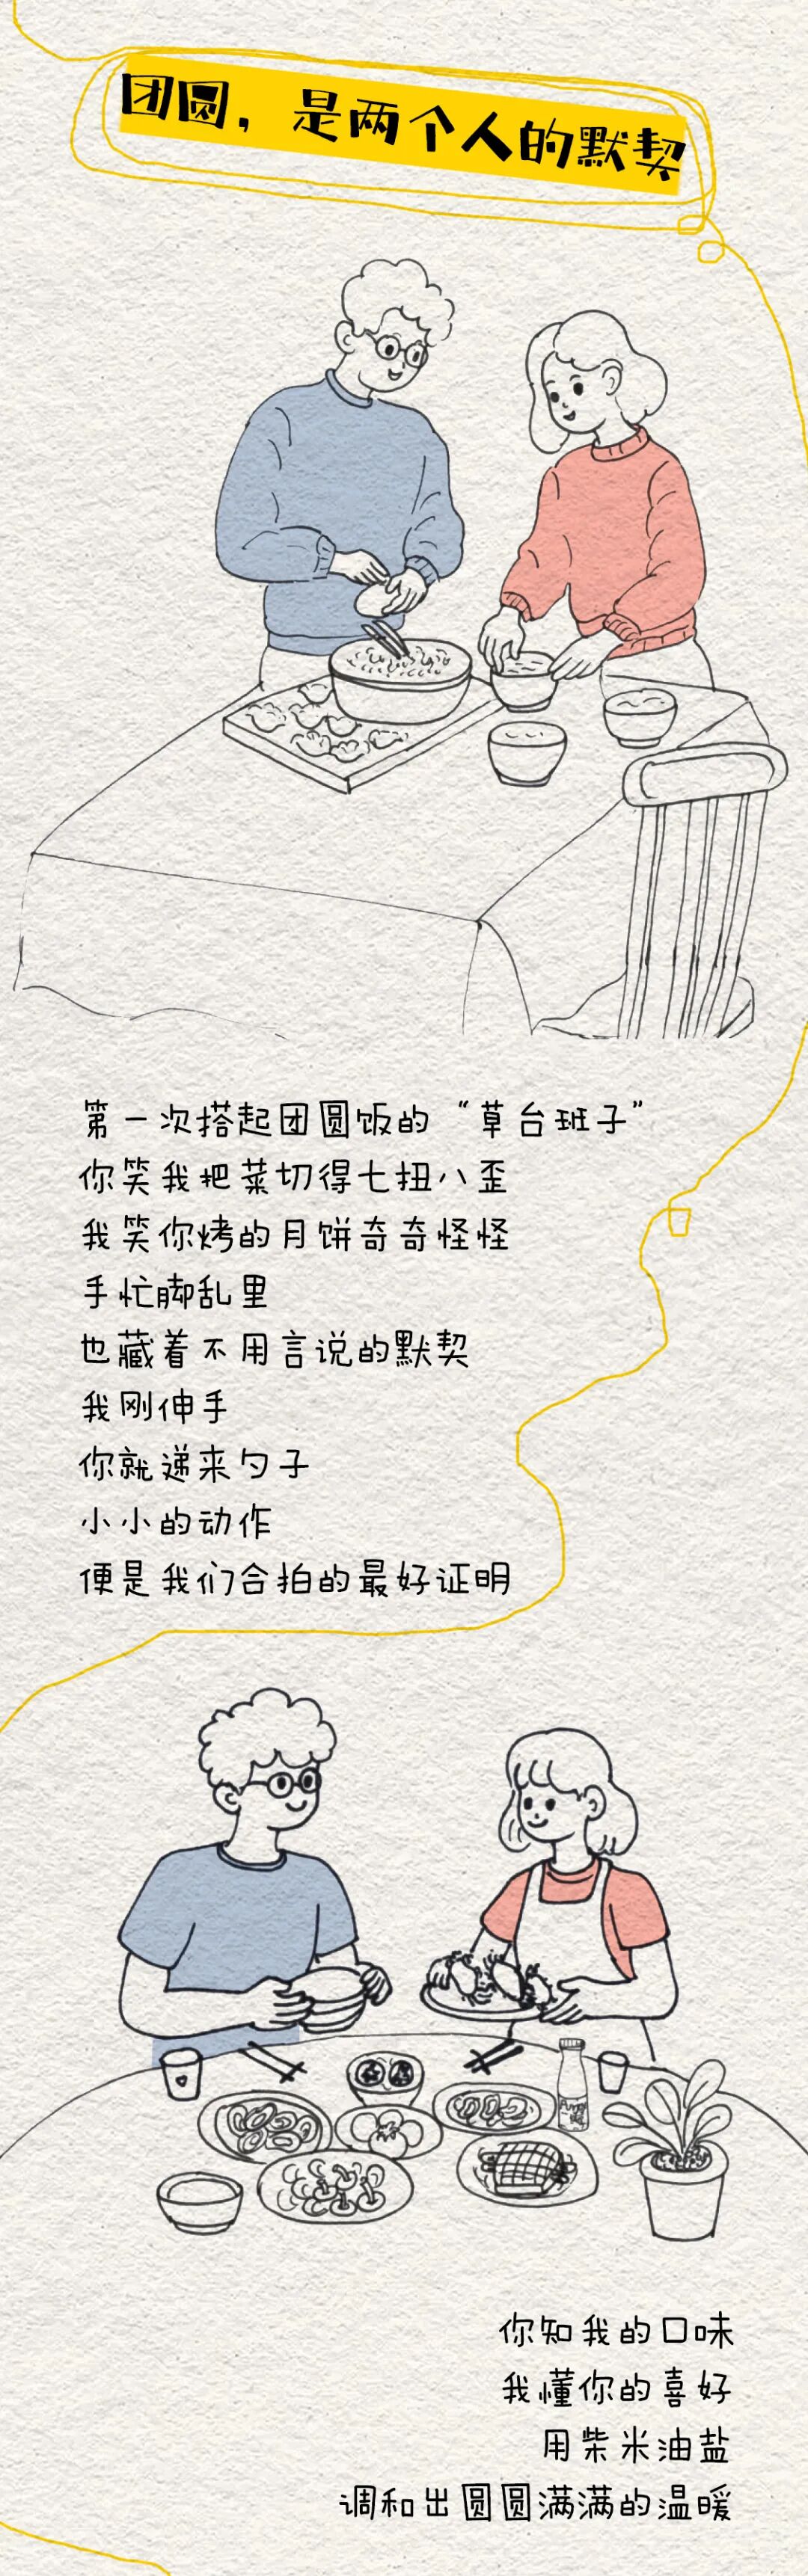 团圆，是两个人的默契
第一次搭起团圆饭的“草台班子”
你笑我把菜切得七扭八歪
我笑你烤的月饼奇奇怪怪
手忙脚乱里
也藏着不用言说的默契
我刚伸手
你就递来勺子
小小的动作
便是我们合拍的最好证明
你知我的口味
我懂你的喜好
用柴米油盐
调和出圆圆满满的温暖